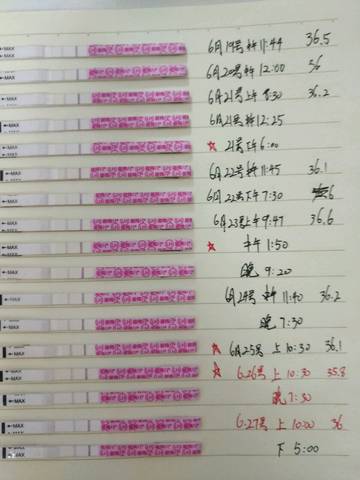 ←MAX 6月19号 中午 11:44 36.5
←MAX 6月20号 中午 12:00 36
←MAX 6月21号 上午 8:30 36.2
←MAX 6月21号 中午 12:25
←MAX ☆ 21号 下午 6:00
←MAX 6月22号 中午 11:45 36.1
←MAX 6月22号 下午 7:30
←MAX 6月23号 上午 9:47 36.6
←MAX ☆ 中午 1:50
←MAX 晚 9:20
←MAX 6月24号 中午 11:40 36.2
←MAX 晚 7:30
←MAX ☆ 6月25号 上 10:30 36.1
←MAX ☆ 6.26号 上 10:30 35.8
←MAX 晚 7:30
←MAX 6.27号 上 10:00 36
←MAX 下 5:00